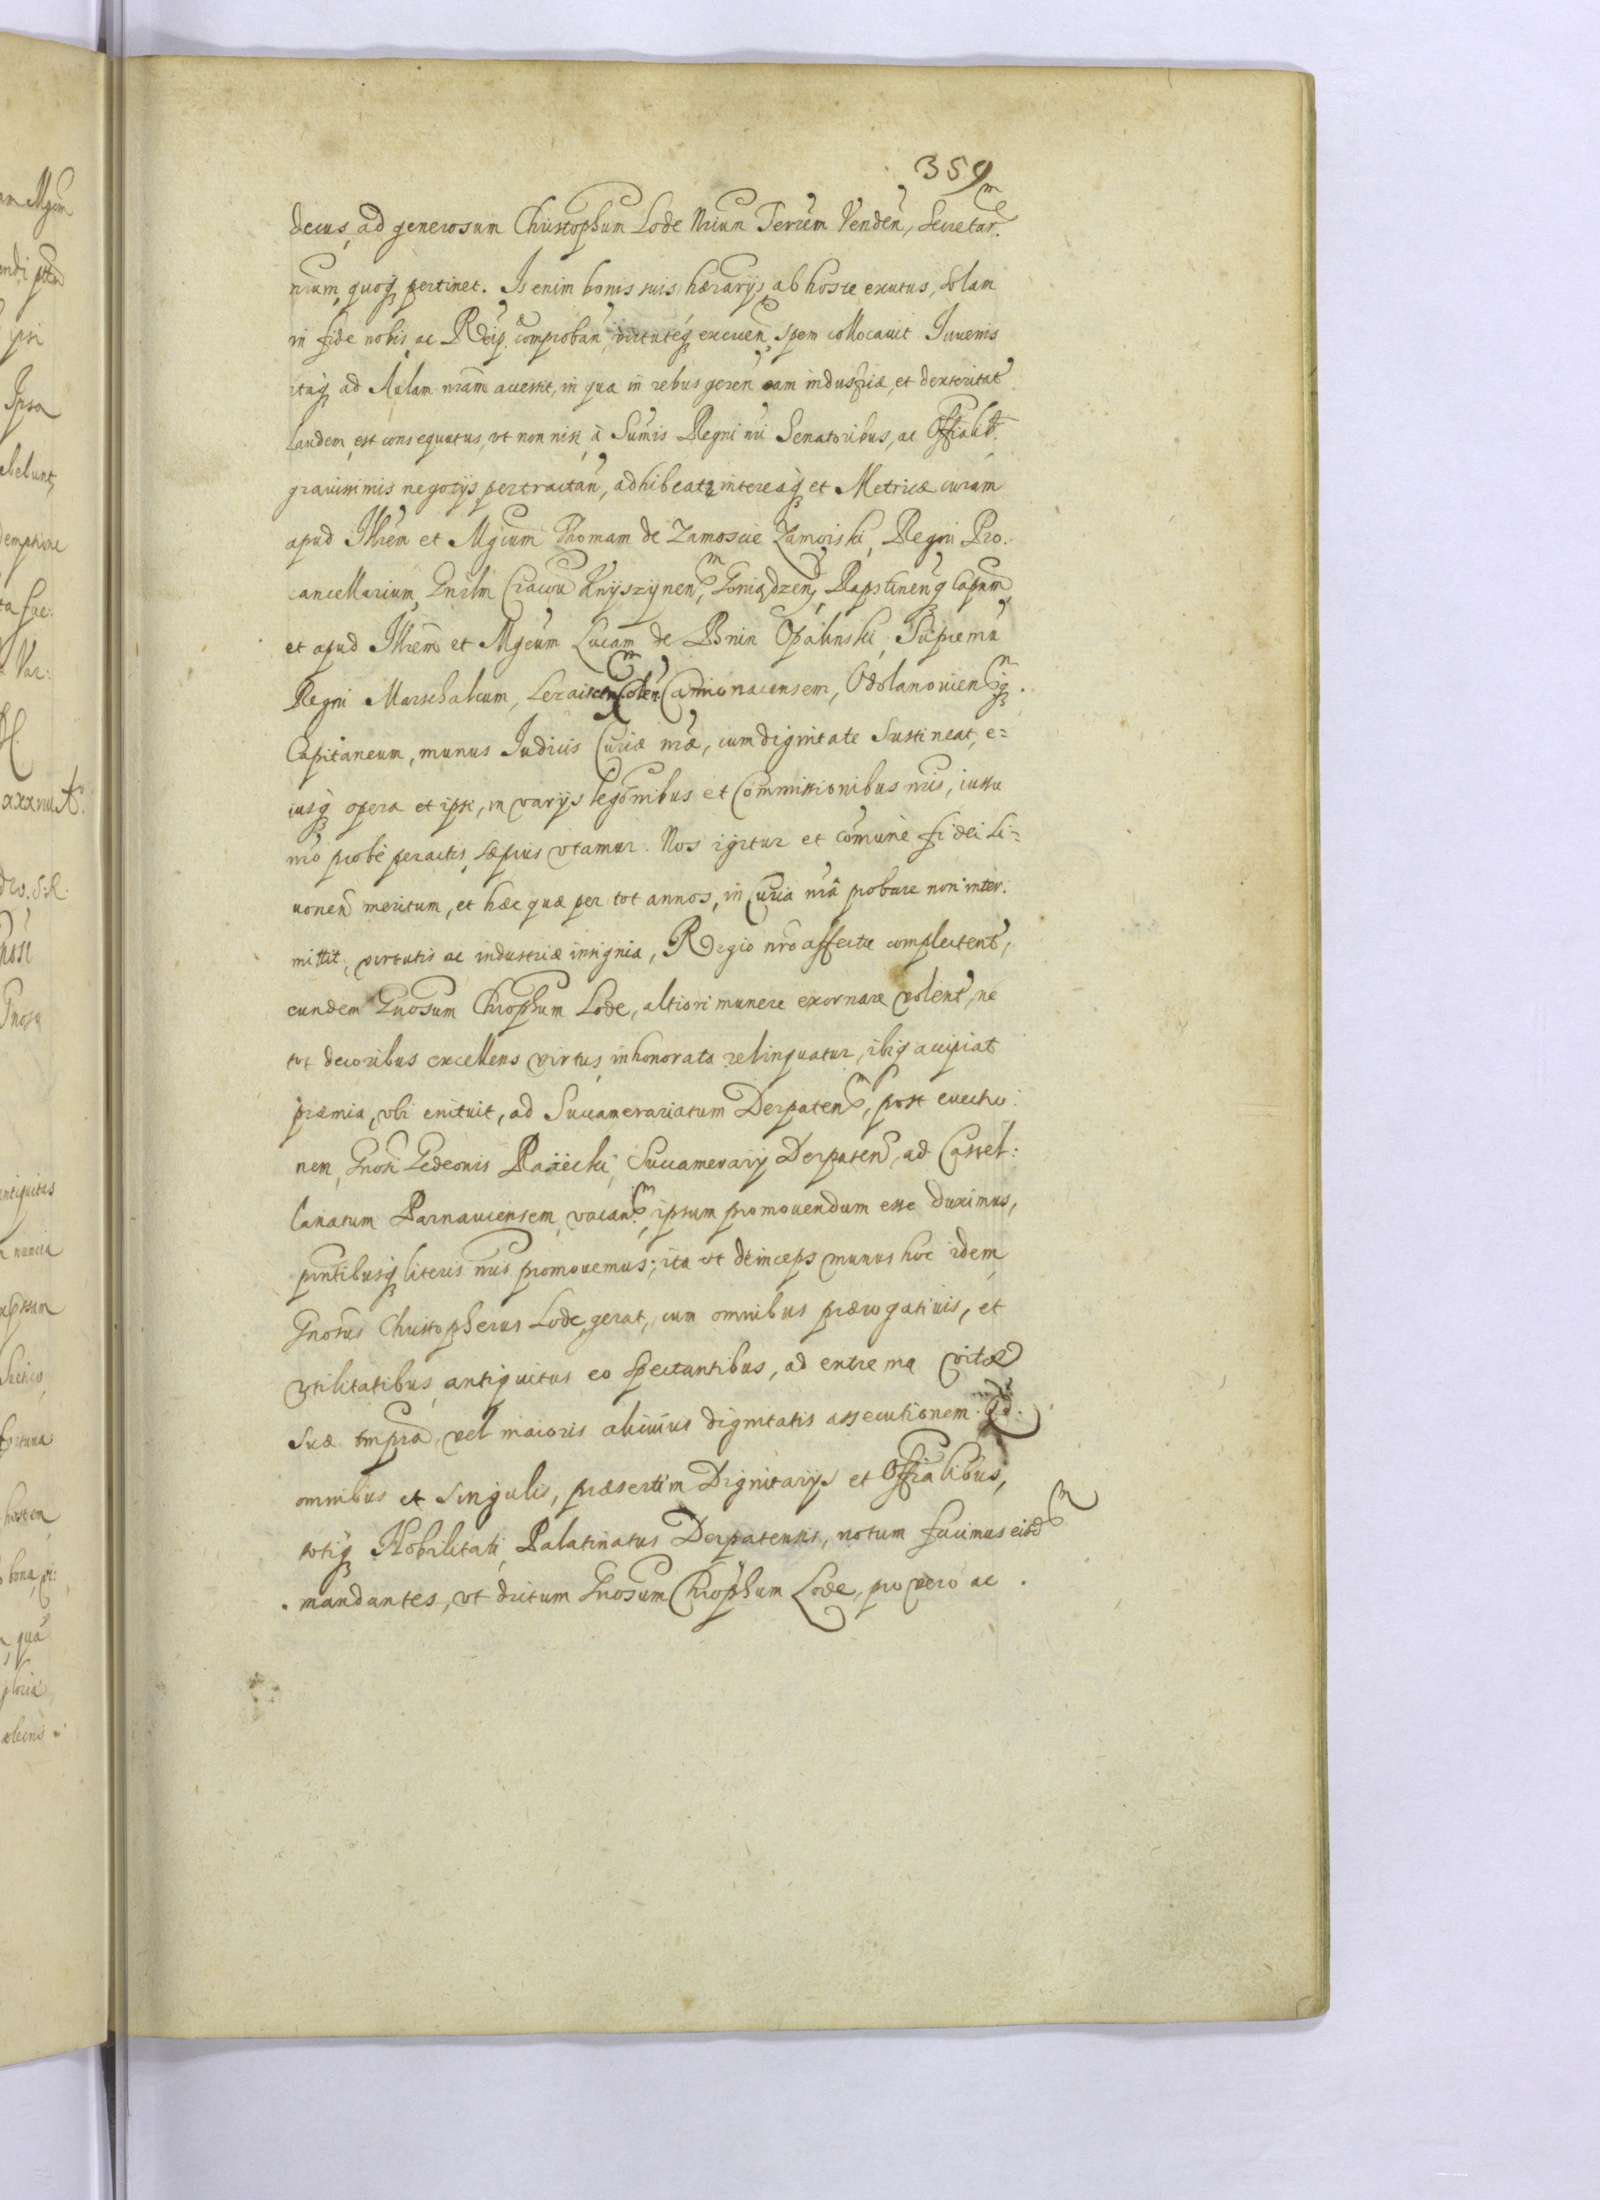 359
decus, ad generosum Christophum Lode Nrium Terrem Venden, Secretar.m
nrum, quoq pertinet. Is enim bonis suis hærarys ab hoste exutus, solam
in fide nobis ac Reip. comproban, virtuteq excuen spem collocauit Iuuenis
itaq ad Aulam nram accessit, in qua in rebus geren eam industriæ, et dexteritat
laudem est consequutus, vt non nisi à Sumis Regni nri Senatoribus, ac Offialib.
grauissimis negotys pertractan, adhibeatr intereaq et Metricæ curam
apud Illrem et Mgcum Thomam de Zamoscie Zamoiski, Regni Pro.
cancellarium, Gnrlm Cracou Knyszynen, Goniądzen, Rapstinenq Capnm
et apud Illrem et Mgcum Lucam de Bnin Opalinski, Supremu
Regni Marschalcum, Camionacensem, Odolanouienq.
Capitaneum, munus Iudicis Curiæ nræ, cum dignitate sustineat, e=
iusq opera et ipsi, in varys legonibus et Commissionibus nris, iussu
nro probè peractis, sæpius vtamur. Nos igitur et comune fidei Li=
uonen meritum, et hæc quæ per tot annos, in Curia nra probare non inter.
mittit, virtutis ac industriæ insignia, Regio nro affectu complectent,
eundem Gnosum Chrophum Lode, altiori munere exornare volent, ne
tot decoribus excellens virtus, inhonorata relinquatur, ibiq accipiat
præmia, vbi enituit, ad Succamerariatum Derpaten, post euectio:
nem, Gnosi Gedeonis Raiecki, Succamerary Derpaten, ad Castel:
lanatum Parnauiensem, vacan, ipsum promouendum esse duximus,
pntibusq literis nris promouemus; ita vt deinceps munus hoc idem
Gnosus Christopherus Lode, gerat, cum omnibus prærogatiuis, et
vtilitatibus, antiquitus eo spectantibus, ad extrema vitæ
suæ tmpra, vel maioris alicuius dignitatis assecutionem. Qd.
omnibus et singulis, præsertim Dignitarys et Offialibus,
totiq Nobilitati Palatinatus Derpatensis, notum facimus eisd
mandantes, vt dictum Gnosum Chrophum Lode, pro vero ac